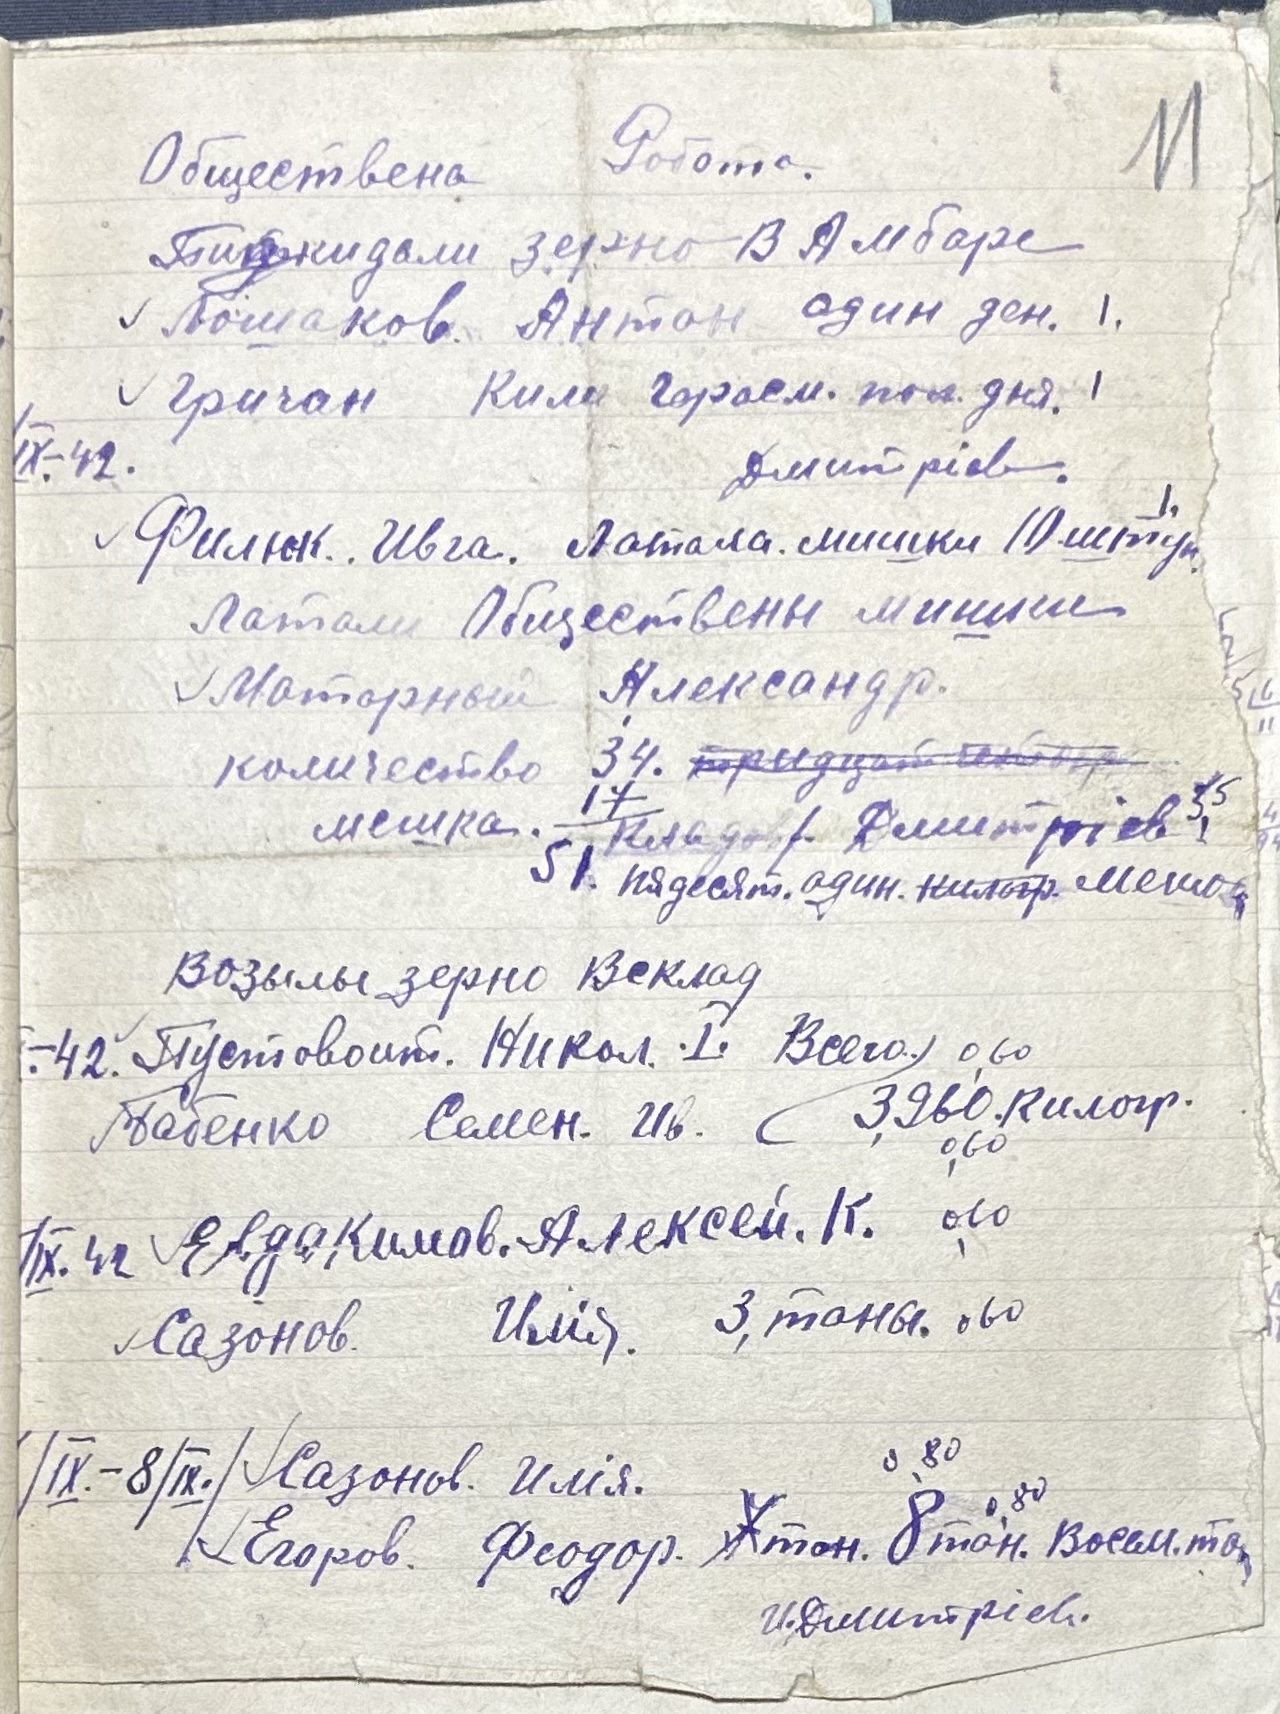 11
Обществена Робота.
кидали зерно В Амбаре
Лошаков. Антон один ден. 1.
Гричан Кили Горасм. пол. дня. 1
IX-42. Дмитріев.
Филюк. Ивга. Латала. мишки 10 штук 1.
Латали Обществены мишки
Моторный Александр.
количество 34. тридцат четыр
мешка. 17 Кладов. Дмитріев 35
51. пядесят. один. килогр. мешок
Возылы зерно Всклад
-42. Пустовоит. Никол. I. Всего. 0,60
Бабенко Семен. Ив. 3,960. килогр.
0,60
IX. 42 Евдакимов. Алексей. К. 0,60
Сазонов. Илія. 3, тоны. 0,60
/IX.-8/IX./ Сазонов. Илія. 0,80
Егоров. Феодор. тон. 8 тон. 0,80 Восем. то
и. Дмитріев.